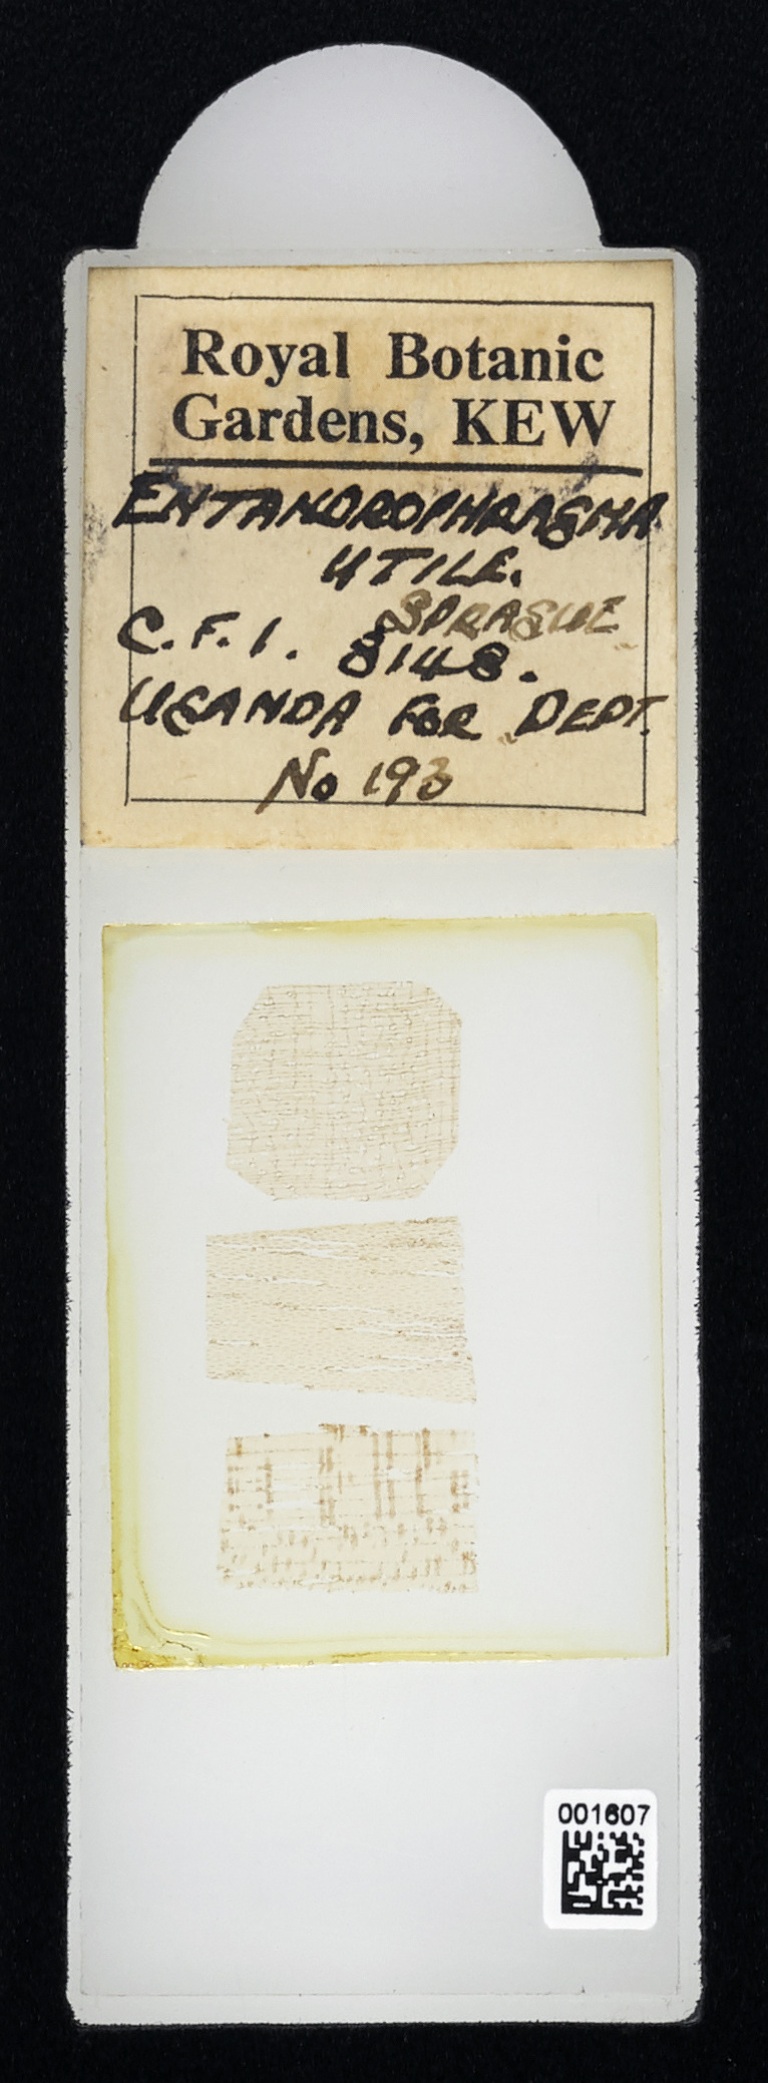 Royal Botanic
Gardens, KEW
ENTANDROPHRAGMA
UTILE.
SPRAGUE
C.F.I. 8148.
UGANDA FOR DEPT.
No 193
001607